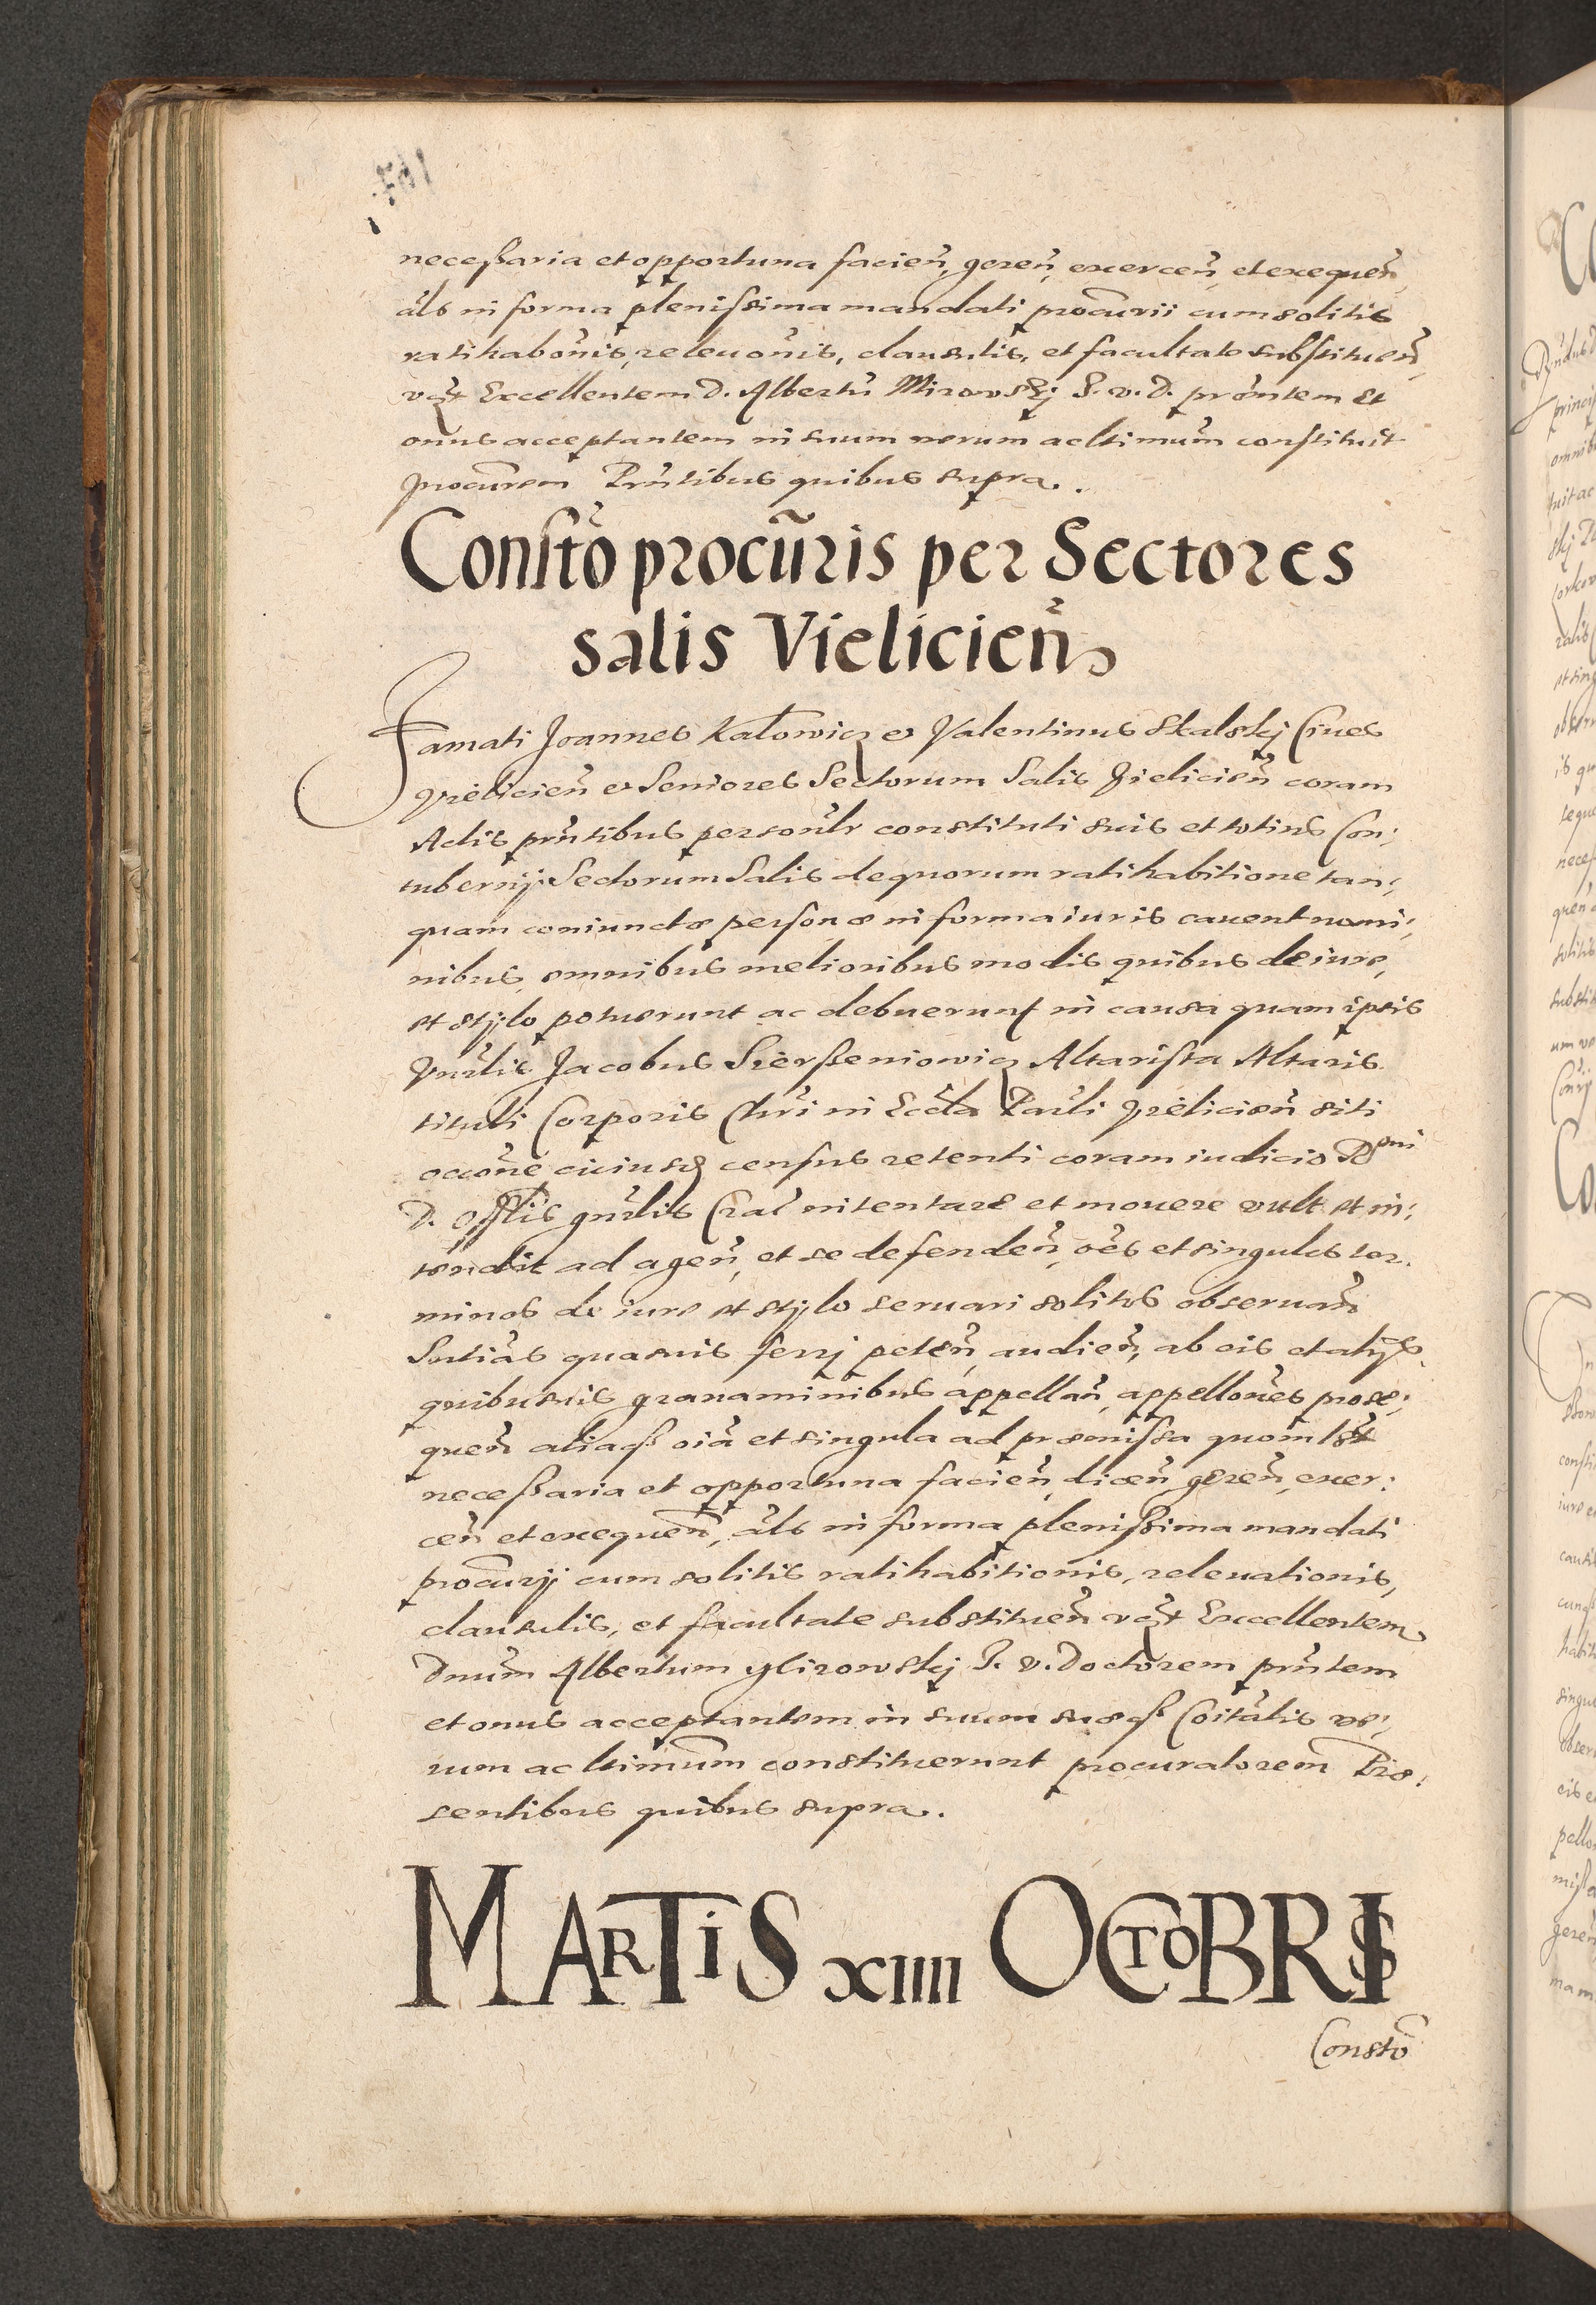 necessaria et opportuna facień, gereń, exerceń, et exequeń,
als in forma plenissima mandati procūrii cum solitis
ratihabōnis, releuōnis, clausulis, et facultate substitueń,
vczt Excellentem D. Albertū Mirowskj J. v. D. prāntem et
onus acceptantem in suum verum ac ltimūm constituit
procūrem Prńtibus quibus supra.
Constō procūris per Sectores
salis Vielicień
Famati Joannes Katowicz et Valentinus Skalskj Ciues
Vielicień et Seniores Sectorum Salis Vielicień coram
Actis prńtibus personlr constituti suis et totius Con:
tubernij Sectorum Salis de quorum ratihabitione tan:
quam coniunctæ personæ in forma iuris cauent nomi:
nibus, omnibus melioribus modis quibus de iure,
et stylo potuerunt ac debuerunt in causa quam ipsis
Jacobus Altarista Altaris
tituli Corporis Chri in Eccla Pārli Vielicień siti
occōne eiusd census retenti coram iudicio Rdmi
D. Offlis gnrlis Crac intentare et mouere vult et in:
tendit ad ageń, et se defendeń, oēs et singulos ter.
minos de iure et stylo seruari solitos obseruań
Sntiās quasuis ferrj peteń, audień, ab eis et alijs
quibusuis grauaminibus appellań, appellōnes prose:
queń aliaq oiā et singula ad præmissa quomlbt
necessaria et opportuna facień, diceń, gereń, exer:
ceń et exequeń, als in forma plenissima mandati
procūrij cum solitis ratihabitionis, releuationis,
clausulis, et facultate substitueń vczt Excellentem
Dnūm Albertum Mirowskj J. v. Doctorem prńtem
et onus acceptantem in suum suæq Coitātis ve:
rum ac ltimūm constituerunt procuratorem Præ:
sentibus quibus supra.
MARTIS XIIII OCTOBRIS
Constō